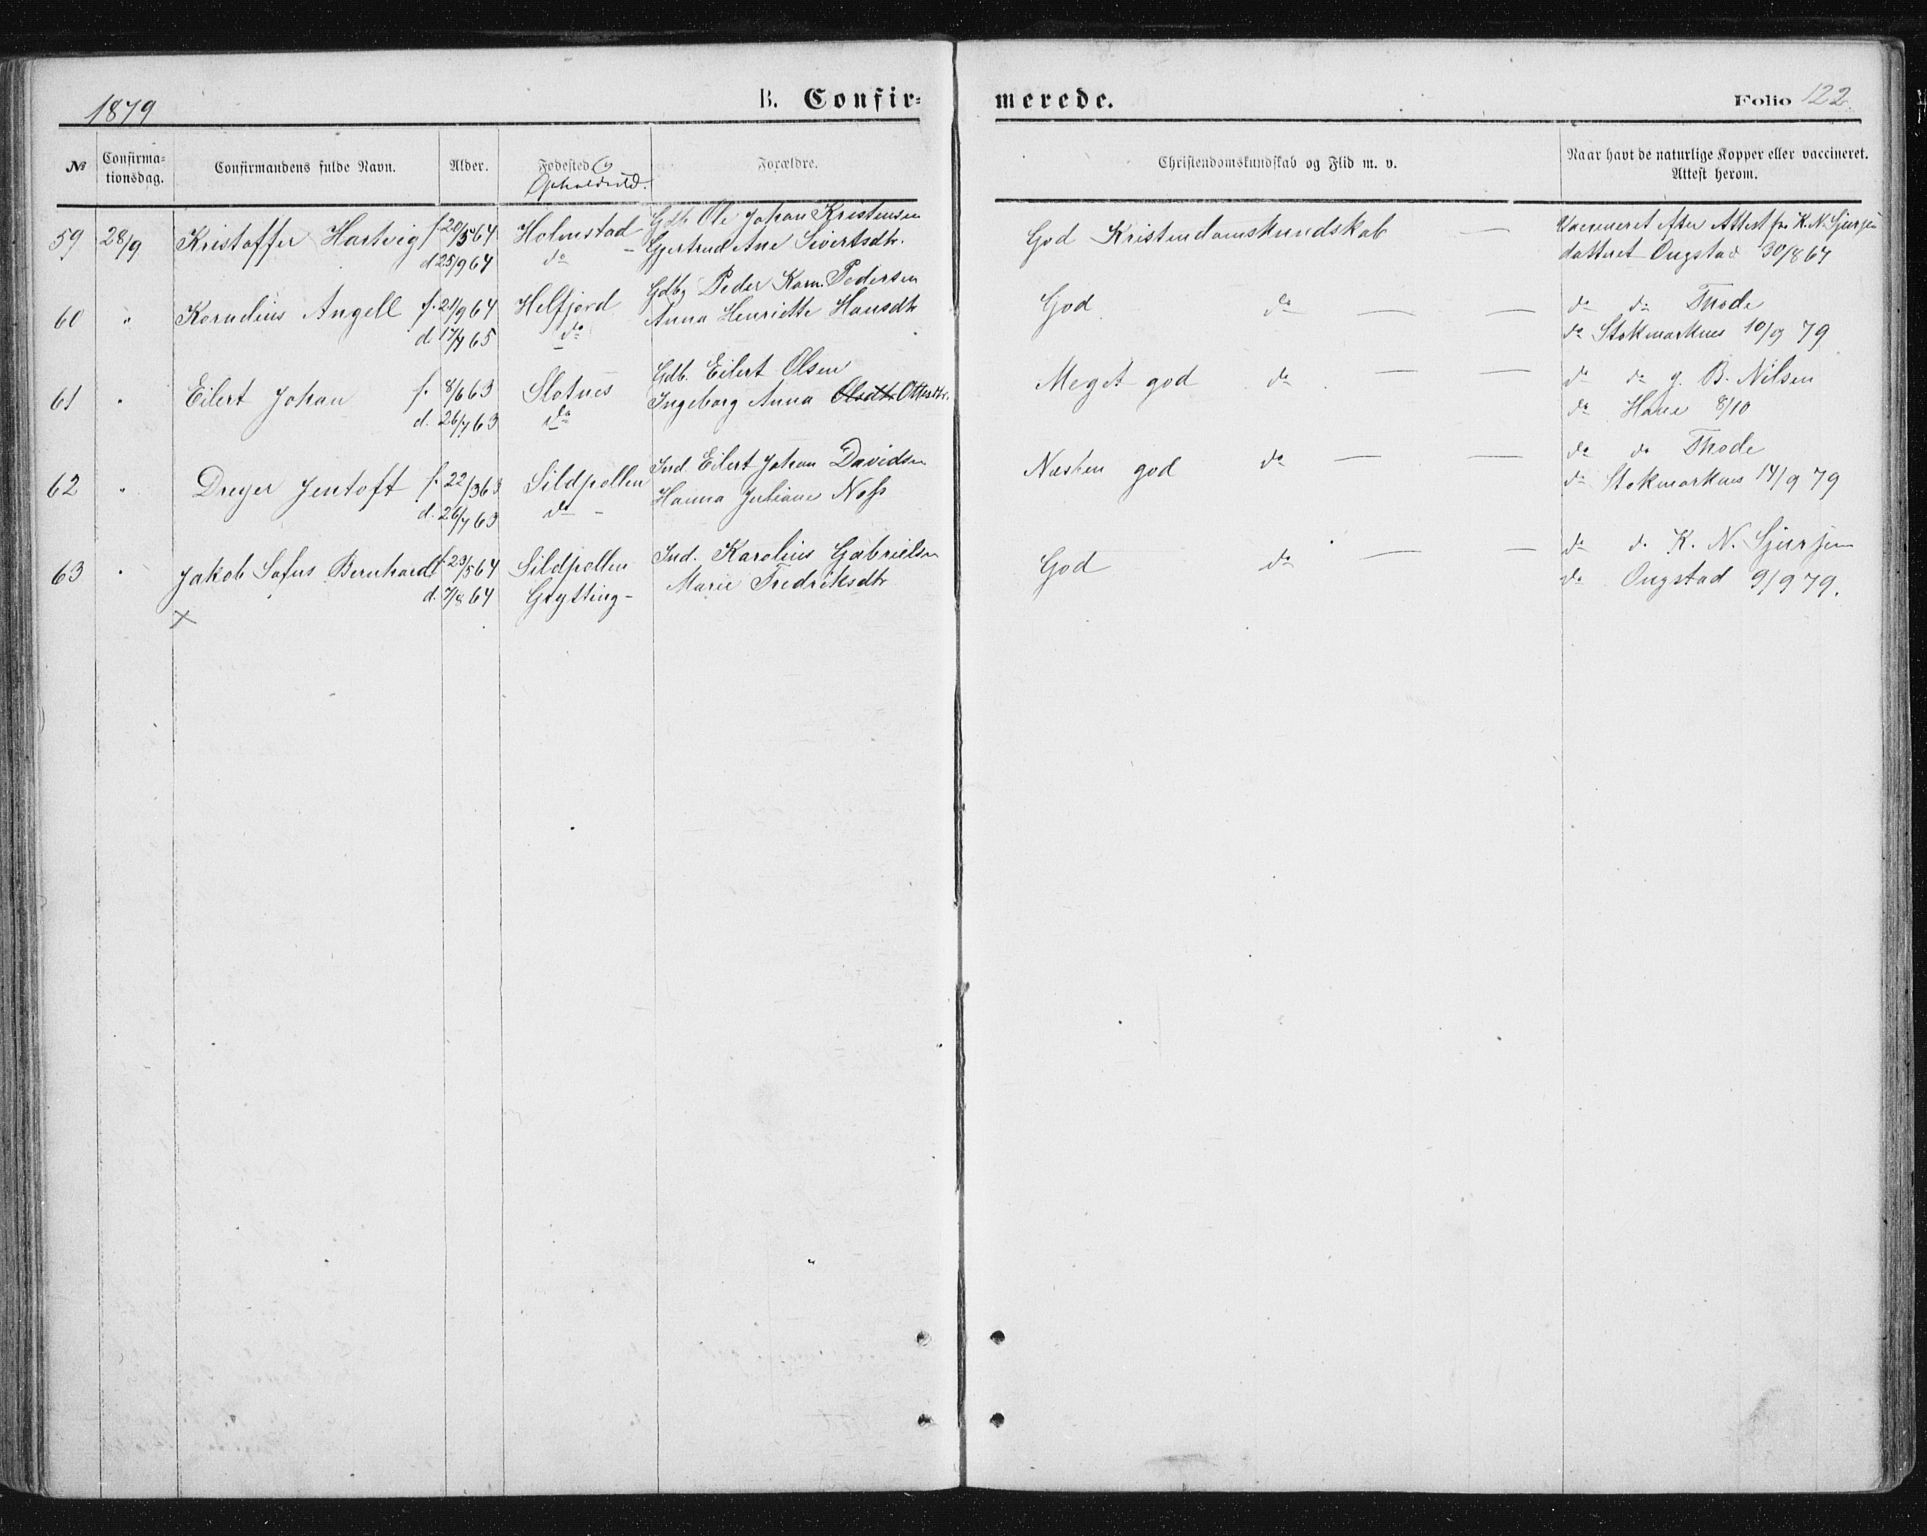 1879 B. Confir= merede. Folio 122.
№ Confirma= tionsdag. Confirmandens fulde Navn. Alder. Fødested og Opholdssted. Forældre. Christendomskundskab og Flid m. v. Naar havt de naturlige Kopper eller vaccineret. Attest herom.
59 28/9 Kristoffer Hartvig f. 20/5 64 Holmstad Gdb. Ole Johan Kristensen God Kristendomskundskab — Vaccineret efter Attest fra K. N. Sjursen
d. 25/9 64 do – Gjertrud Ane Sivertsdtr. datteret Ongstad 30/8 64
60 " Kornelius Angell f. 21/9 64 Helfjord Gdb. Peder Korn. Pedersen God do — — — do do Thode
d. 17/7 65 do Anna Henriette Hansdtr do Stokmarknes 10/9 79
61 " Eilert Johan f. 8/6 63 Slotnes Gdb. Eilert Olsen Meget god do — — do do g. B. Nilsen
d. 26/7 63 do Ingeborg Anna Olsdtr Ottesdtr. do Hane 8/10
62 " Dreyer Jentoft f. 22/3 63 Sildpollen Ind. Eilert Johan Davidsen Næsten god do — — do do Thode
d. 26/7 63 do – Hanna Juliane Noss do Stokmarknes 14/9 79
63 " Jakob Sofus Bernhard f. 23/5 64 Sildpollen Ind. Karolius Gabrielsen God do — — do do K. N. Sjursen
d. 7/8 64 Grytting – Marie Fredriksdtr do Ongstad 9/9 79.
×